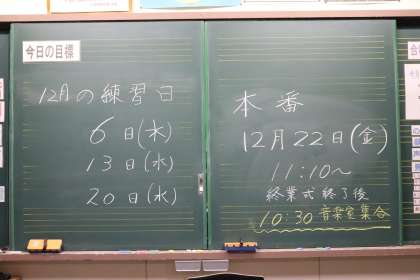 今日の目標
12月の練習日
6日(木)
13日(水)
20日(水)
本番
12月22日(金)
11:10〜
終業式終了後
10:30 音楽室集合